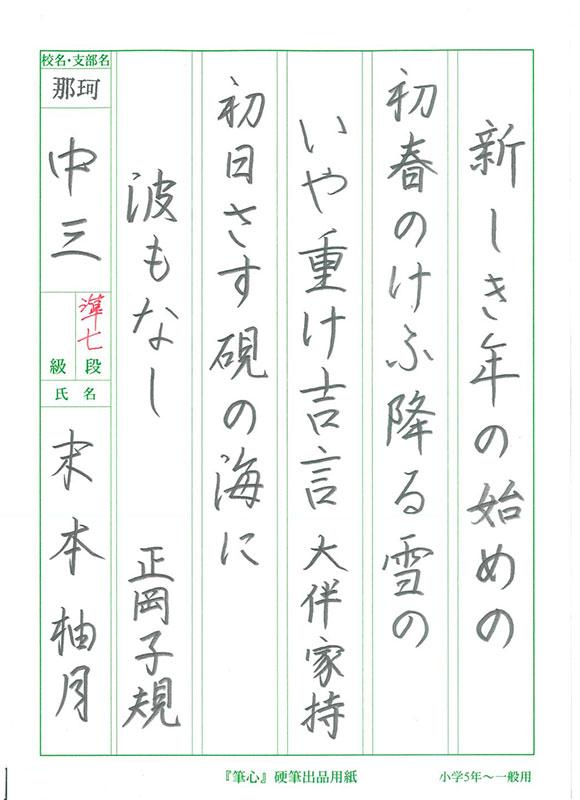 新しき年の始めの
初春のけふ降る雪の
いや重け吉言 大伴家持
初日さす硯の海に
波もなし 正岡子規
校名・支部名
那珂
中三
準七
段
級
氏名
末本柚月
『筆心』硬筆出品用紙
小学5年～一般用